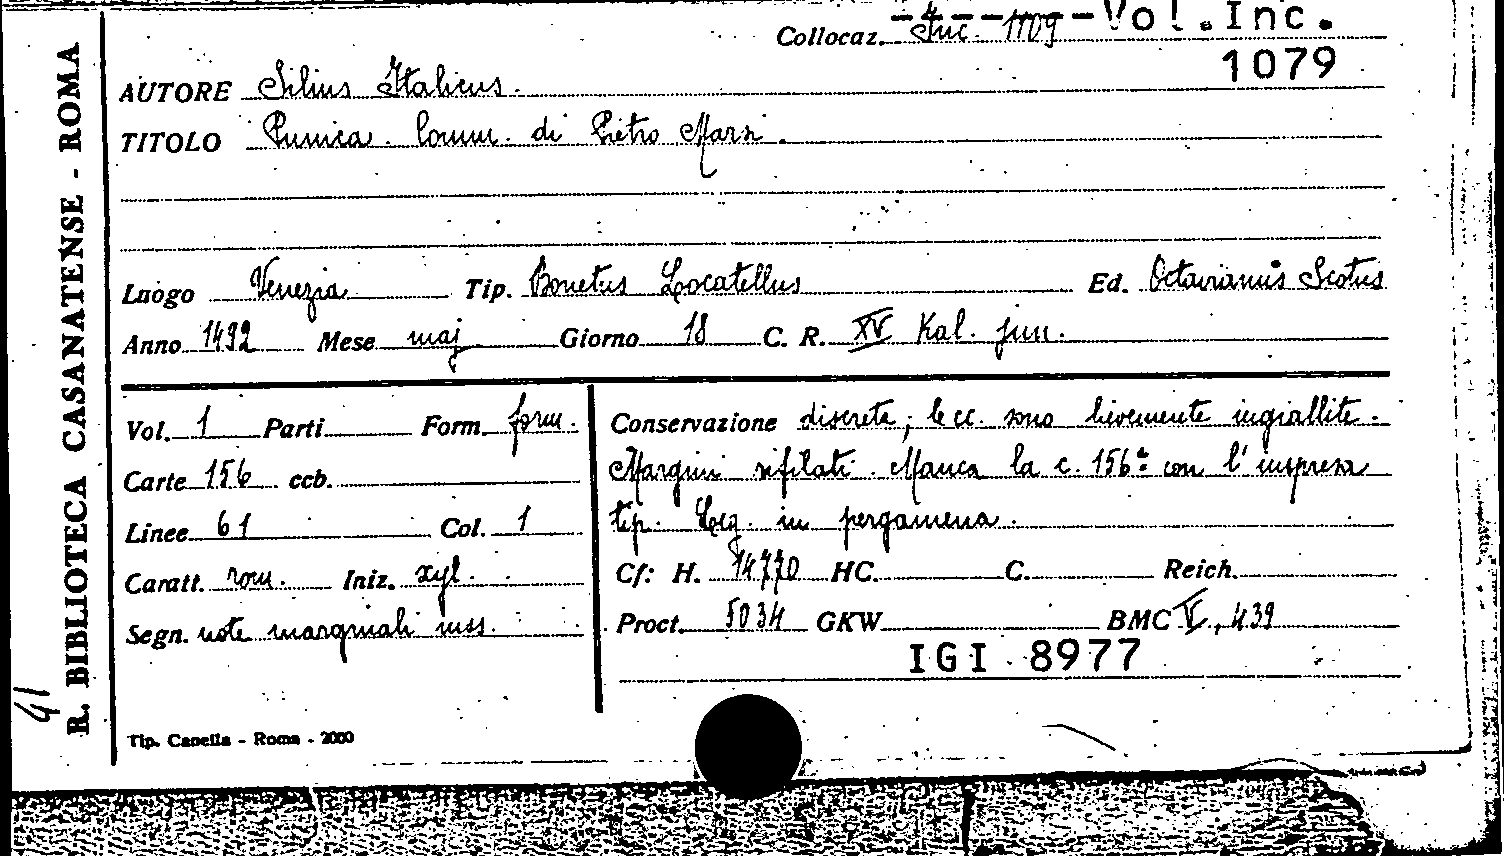 R. BIBLIOTECA CASANATENSE - ROMA
41
Collocaz. Inc. 1109 Vol.Inc.
1079
AUTORE Silius Italicus.
TITOLO Punica. Comm. di Pietro Marsi.
Luogo Venezia Tip. Bonetus Locatellus Ed. Octavianus Scotus
Anno 1492 Mese maj Giorno 18 C. R. XV Kal. jun.
Vol. 1 Parti Form. form.
Carte 156 ccb.
Linee 61 Col. 1
Caratt. rom. Iniz. xyl.
Segn. note marginali mss.
Conservazione discreta; le cc. sono lievemente ingiallite.
Margini rifilati. Manca la c. 156ª con l'impresa
tip. Leg. in pergamena.
Cf: H. 14770 HC. C. Reich.
Proct. 5034 GKW BMC V, 439
IGI 8977
Tip. Canella - Roma - 2000